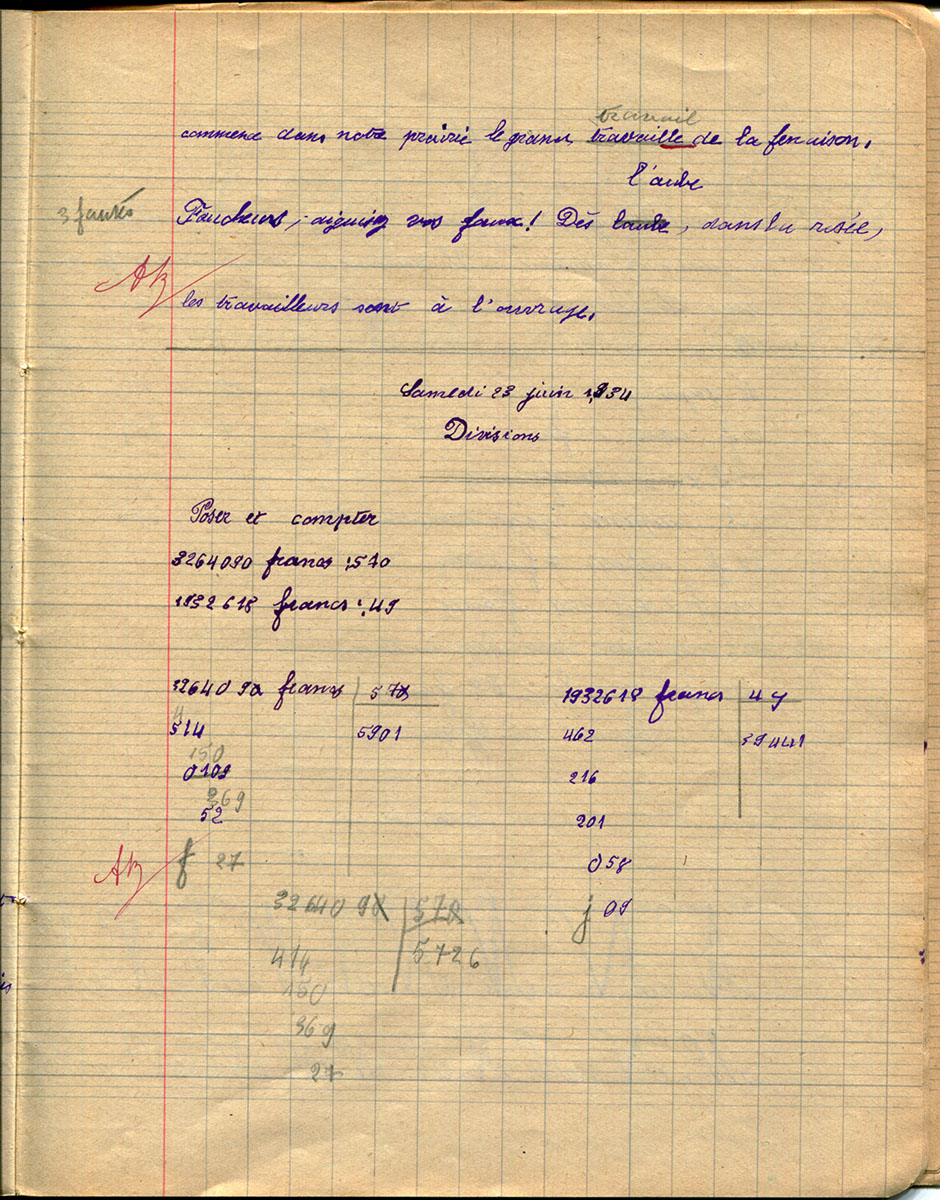 travail
commence dans notre prairie le grand travaille de la fenaison.
l'aube
3 fautes
Faucheurs, aiguisez vos faux! Dès laube, dans la rosée,
les travailleurs sont à l'ouvrage.
Samedi 23 juin 1934
Divisions
Poser et compter
3264090 francs : 570
1932618 francs : 49
3264090 francs 570
514 5901
150
0109
369
52
f 27
1932618 francs 49
462 39441
216
201
058
j 09
3264090 570
414 5726
150
369
27